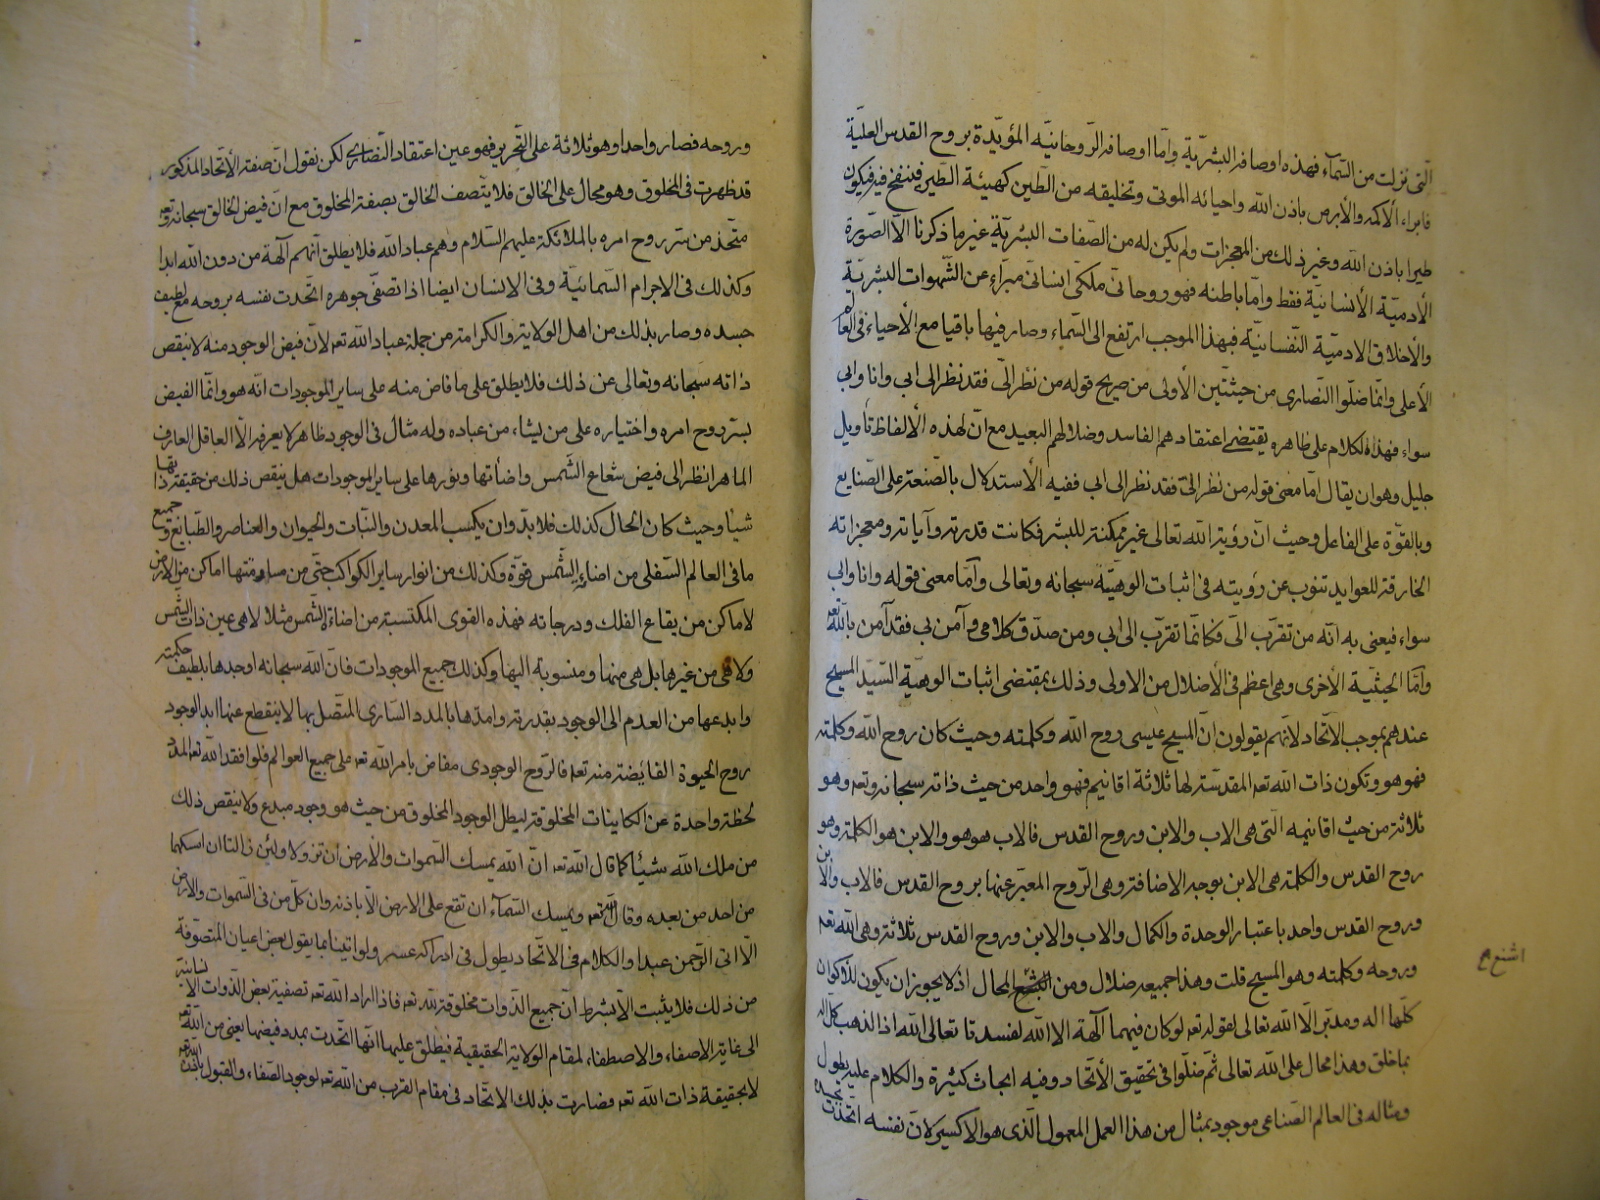 التى نزلت من السّمآء فهذه اوصافه البشريّة وامّا اوصافه الرّوحانيّه المؤيّدة بروح القدس العليّة
فابراء الأكمه والأبرص باذن الله واحيائه الموتى وتخليقه من الطّين كهيئة الطّير فينفخ فيه فيكون
طيرا باذن الله وغير ذلك من المعجزات ولم يكن له من الصّفات البشريّة غير ما ذكرنا الّا الصّورة
الأدميّة الأنسانيّة فقط وامّا باطنه فهو روحانىّ ملكىّ انسانىّ مبرّاء عن الشّهوات البشريّة
والأخلاق الادميّة النّفسانيّه فبهذا الموجب ارتفع الى السّماء وصار فيها باقيا مع الأحياء فى العالم
الأعلى وانّما ضلّوا النّصارى من حيثيّتين الأولى من صريح قوله من نظر الىّ فقد نظر الى ابى وانا وابى
سواء فهذا الكلام على ظاهره يقتضى اعتقادهم الفاسد وضلالهم البعيد مع انّ لهذه الألفاظ تأويل
جليل وهو ان يقال امّا معنى قوله من نظر الىّ فقد نظر الى ابى ففيه الأستدلال بالصّنعة على الصّانع
وبالقوّة على الفاعل وحيث انّ رؤية الله تعالى غير ممكنة للبشر فكانت قدرته وآياته ومعجزاته
الخارقة للعوايد تنوب عن رؤيته فى اثبات الوهيّته سبحانه وتعالى وامّا معنى قوله وانا وابى
سواء فيعنى به انّه من تقرّب الىّ فكانّما تقرّب الى ابى ومن صدّق كلامى وآمن بى فقد آمن بالله تعه
وامّا الحيثيّة الأخرى وهى اعظم فى الأضلال من الاولى وذلك بمقتضى اثبات الوهيّة السّيّد المسيح
عندهم بموجب الاتّحاد لانّهم يقولون انّ المسيح عيسى روح الله وكلمته وحيث كان روح الله وكلمته
فهو هو وتكون ذات الله تعه المقدّسة لها ثلاثة اقانيم فهو واحد من حيث ذاته سبحانه وتعه وهو
ثلاثة من حيث اقانيمه التى هى الاب والابن وروح القدس فالاب هو هو والابن هو الكلمة وهو
روح القدس والكلمة هى الابن بوجه الاضافة وهى الرّوح المعبّر عنها بروح القدس فالاب والابن
وروح القدس واحد باعتبار الوحدة والكمال والاب والابن وروح القدس ثلاثة وهى الله تعه
وروحه وكلمته وهو المسيح قلت وهذا جميعه ضلال ومن المحال اذ لا يجوز ان يكون للاكوان
كلّها اله ومدبّر الّا الله تعالى لقوله تعه لو كان فيهما آلهة الا الله لفسدتا تعالى الله اذا لذهب كلّ اله
بما خلق وهذا محال على الله تعالى ثمّ ضلّوا فى تحقيق الأتّحاد وفيه ابحاث كثيرة والكلام عليه يطول
ومثاله فى العالم الصّناعى موجود بمثال من هذا العمل المعمول الّذى هو الاكسير لانّ نفسه اتّحدت بجسده
اشنع صح
وروحه فصار واحدا وهو ثلاثة على التّحرير فهو عين اعتقاد النّصارى لكن نقول انّ صفة الأتّحاد المذكور
قد ظهرت فى المخلوق وهو محال على الخالق فلا يتّصف الخالق بصفة المخلوق مع انّ فيض الخالق سبحانه وتعه
متّحد من سرّ روح امره بالملائكة عليهم السّلام وهم عباد الله فلا يطلق انّهم آلهة من دون الله ابدا
وكذلك فى الاجرام السّمائيّة وفى الانسان ايضا اذا تصفّى جوهره اتّحدت نفسه بروحه مع لطيف
جسده وصار بذلك من اهل الولاية والكرامة من جملة عباد الله تعه لانّ فيض الوجود منه لا ينقص
ذاته سبحانه وتعالى عن ذلك فلا يطلق على ما فاض منه على ساير الموجودات انّه هو وانّما الفيض
بسرّ روح امره واختياره على من يشاء من عباده وله مثال فى الوجود ظاهر لا يعرفه الّا العاقل العارف
الماهر انظر الى فيض شعاع الشّمس واضأتها ونورها على ساير الموجودات هل ينقص ذلك من حقيقة ذاتها
شيئا وحيث كان الحال كذلك فلا بدّ وان يكتسب المعدن والنّبات والحيوان والعناصر والطّبايع وجميع
ما فى العالم السّفلى من اضاءة الشّمس قوّة وكذلك من انوار ساير الكواكب حتّى من مسامتتها اماكن من الارض
لاماكن من بقاع الفلك ودرجاته فهذه القوى المكتسبة من اضاءة الشّمس مثلا لا هى عين ذات الشّمس
ولا هى من غيرها بل هى منها ومنسوبة اليها وكذلك جميع الموجودات فانّ الله سبحانه اوجدها بلطيف حكمته
وابدعها من العدم الى الوجود بقدرته وامدّها بالمدد السّارى المتّصل بها لا ينقطع عنها ابدا لوجود
روح الحيوة الفائضة منه تعه فالرّوح الوجودى مفاض بامر الله تعه على جميع العوالم فلو افقد الله تعه المدد
لحظة واحدة عن الكاينات المخلوقة لبطل الوجود المخلوق من حيث هو وجود مبدع ولا ينقص ذلك
من ملك الله شيئا كما قال الله تعه انّ الله يمسك السّموات والأرض ان تزولا ولئن زالتا ان امسكهما
من احد من بعده وقال الله تعه ويمسك السّمآء ان تقع على الارض الّا باذنه وان كلّ من فى السّموات والارض
الّا اتى الرّحمن عبدا والكلام فى الاتّحاد يطول فى ادراكه عسر ولو اتينا بما يقول بعض اعيان المتصوّفة
من ذلك فلا يثبت الّا بشرط انّ جميع الذّوات مخلوقة لله تعه فاذا اراد الله تعه تصفية بعض الذّوات الانسانيّة
الى غاية الاصفاء والاصطفاء لمقام الولاية الحقيقية فيطلق عليها انّها اتّحدت بمدد فيضها يعنى من الله تعه
لا بحقيقة ذات الله تعه وصارت بذلك الاتّحاد فى مقام القرب من الله تعه لوجود الصّفاء والقبول باذن الله تعه